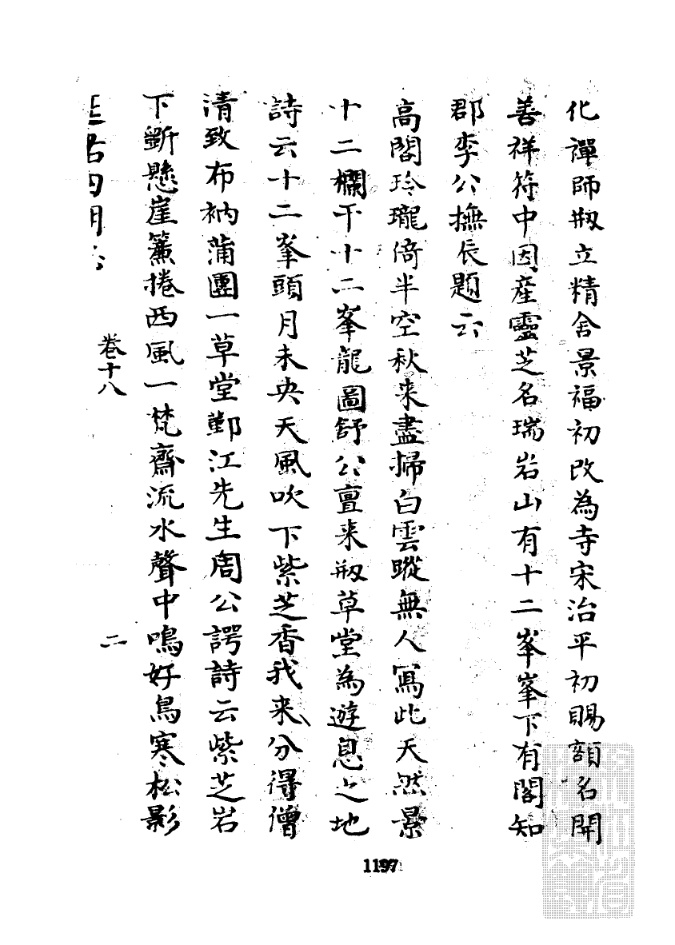 化禪師剏立精舍景福初改為寺宋治平初賜額名開
善祥符中因産靈芝名瑞岩山有十二峯峯下有閣知
郡李公撫辰題云
高閣玲瓏倚半空秋来盡掃白雲蹤無人寫此天然景
十二欄干十二峯龍圖舒公亶来剏草堂為遊息之地
詩云十二峯頭月未央天風吹下紫芝香我来分得僧
清致布衲蒲團一草堂鄞江先生周公諤詩云紫芝岩
下斷懸崖簾捲西風一梵齋流水聲中鳴好鳥寒松影
卷十八
二
1197